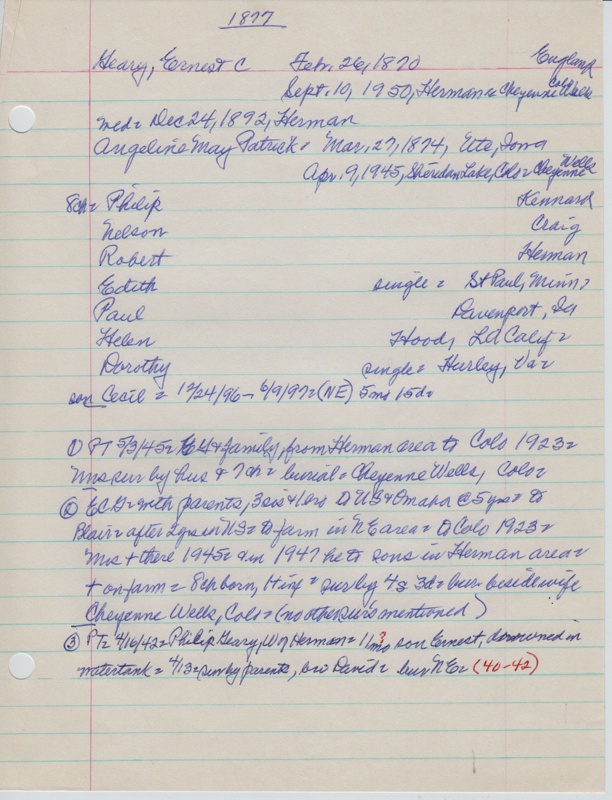 1877
Geary, Ernest C Feb. 26, 1870 England
Sept. 10, 1950, Herman = Cheyenne Wells Colo
med = Dec 24, 1892, Herman
Angeline May Patrick = Mar. 27, 1874, Ute, Iowa
Apr. 9, 1945, Sheridan Lake, Colo = Cheyenne Wells
8ch = Philip Kennard
Nelson Craig
Robert Herman
Edith single = St Paul, Minn =
Paul Davenport, Ia
Helen Hood, LA Calif =
Dorothy single = Hurley, Va =
son Cecil = 12/24/96 - 6/9/97 = (NE) 5mo 15d =
① PT 5/3/45 = & family, from Herman area to Colo 1923 =
Mrs sur by hus & 7ch = burial = Cheyenne Wells, Colo =
② ECG = with parents, 3 sis & 1 bro to US & Omaha @ 5 yrs = to
Blair = after 2 yrs in US = to farm in NE area = to Colo 1923 =
Mrs + there 1945 = & in 1947 he to sons in Herman area =
+ on farm = 8ch born, 1 + inf = sur by 4s 3d = bur beside wife
Cheyenne Wells, Colo = (no other surs mentioned)
③ PT = 4/16/42 = Philip Geary, W of Herman = 11 mo ? son Ernest, drowned in
watertank = 4/13 = sur by parents, bro David = bur NE = (40-42)